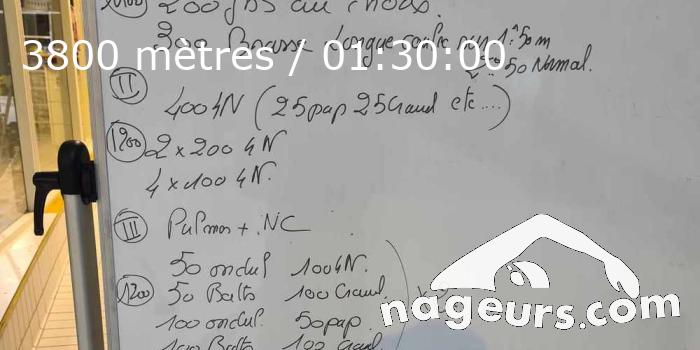 200 au choix.
300 Brasse longue coulée sur 1er 50 m
3800 mètres / 01:30:00
2e 50 Normal.
II
400 4N (25 pap 25 Crawl etc....)
1200 2 x 200 4N
4 x 100 4N.
III Pulmos + NC
50 ondul 100 4N.
1200 50 Batts 100 Crawl
100 ondul. 50 pap.
100 Batts 100 Crawl.
nageurs.com